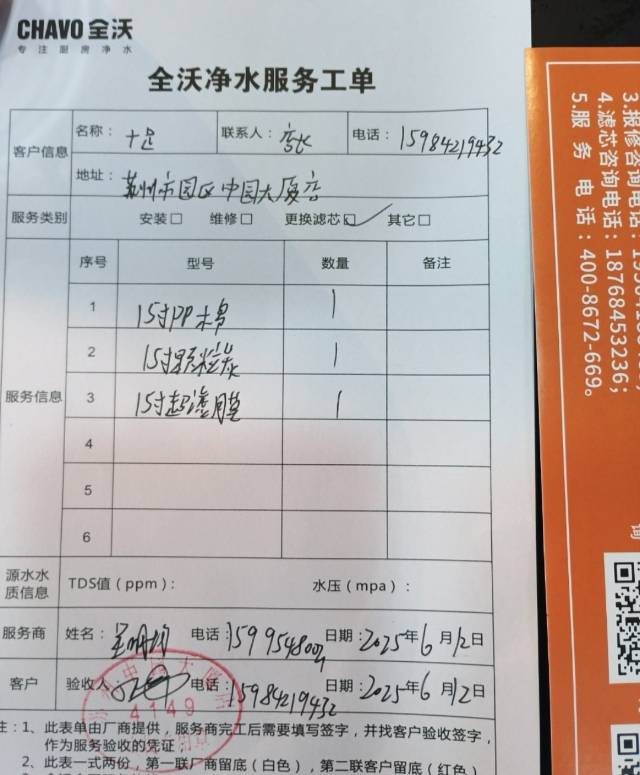 CHAVO 全沃
专注厨房净水
全沃净水服务工单
客户信息
名称： 十足 联系人： 店长 电话： 15984219432
地址： 苏州市园区中国大厦店
服务类别 安装□ 维修□ 更换滤芯☑ 其它□
序号 型号 数量 备注
服务信息
1 15寸PP棉 1
2 15寸颗粒炭 1
3 15寸超滤膜 1
4
5
6
源水水质信息 TDS值（ppm）： 水压（mpa）：
服务商 姓名： 电话： 日期：2025年6月12日
客户 验收人： 电话：15984219432 日期：2025年6月12日
4149
注：1、此表单由厂商提供，服务商完工后需要填写签字，并找客户验收签字，
作为服务验收的凭证
2、此表一式两份，第一联厂商留底（白色），第二联客户留底（红色）
3.报修咨询电话：
4.滤芯咨询电话：18768453236；
5.服务电话：400-8672-669。
询